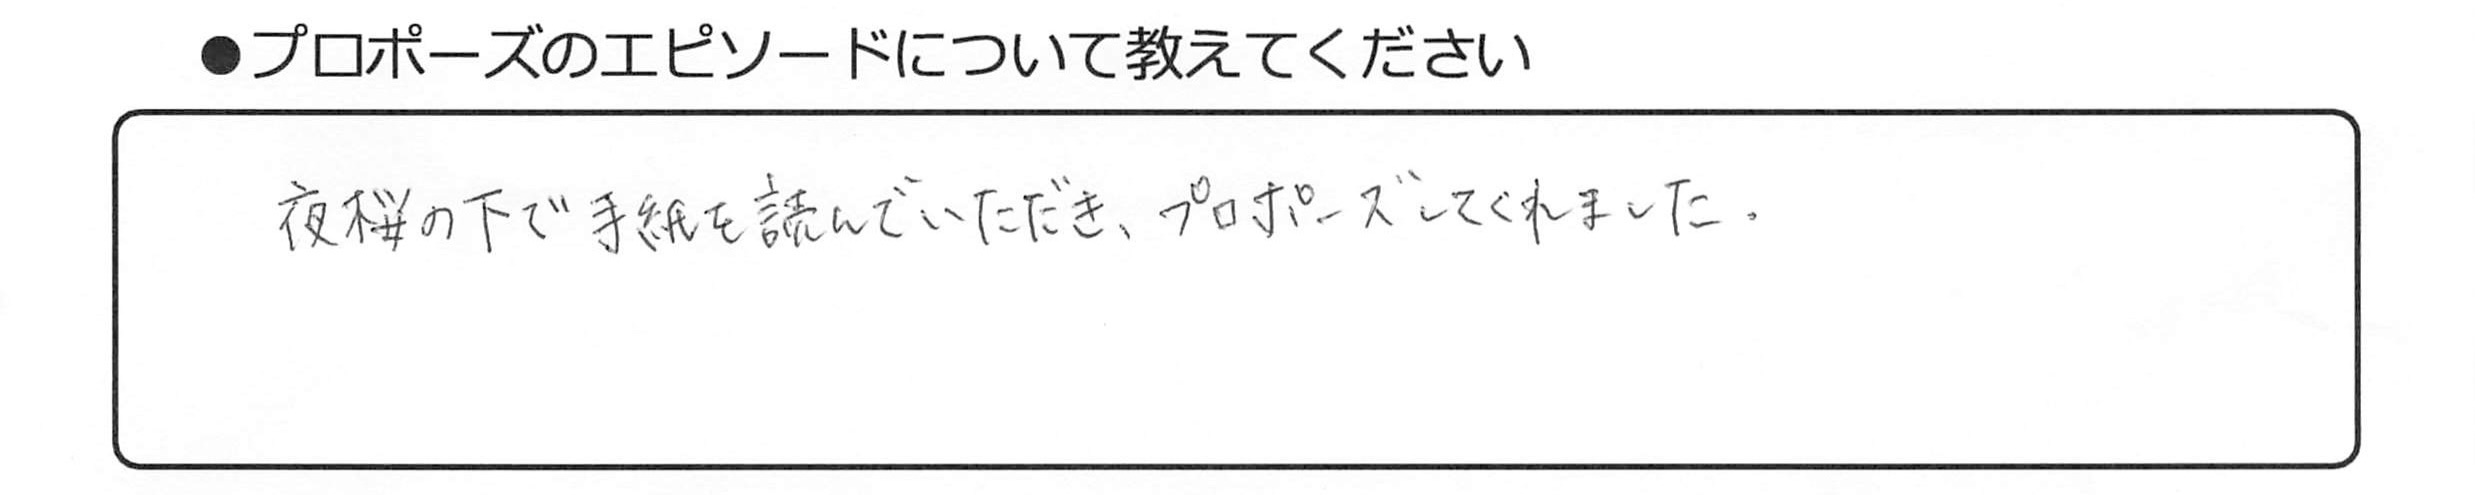 ●プロポーズのエピソードについて教えてください
夜桜の下で手紙を読んでいただき、プロポーズしてくれました。